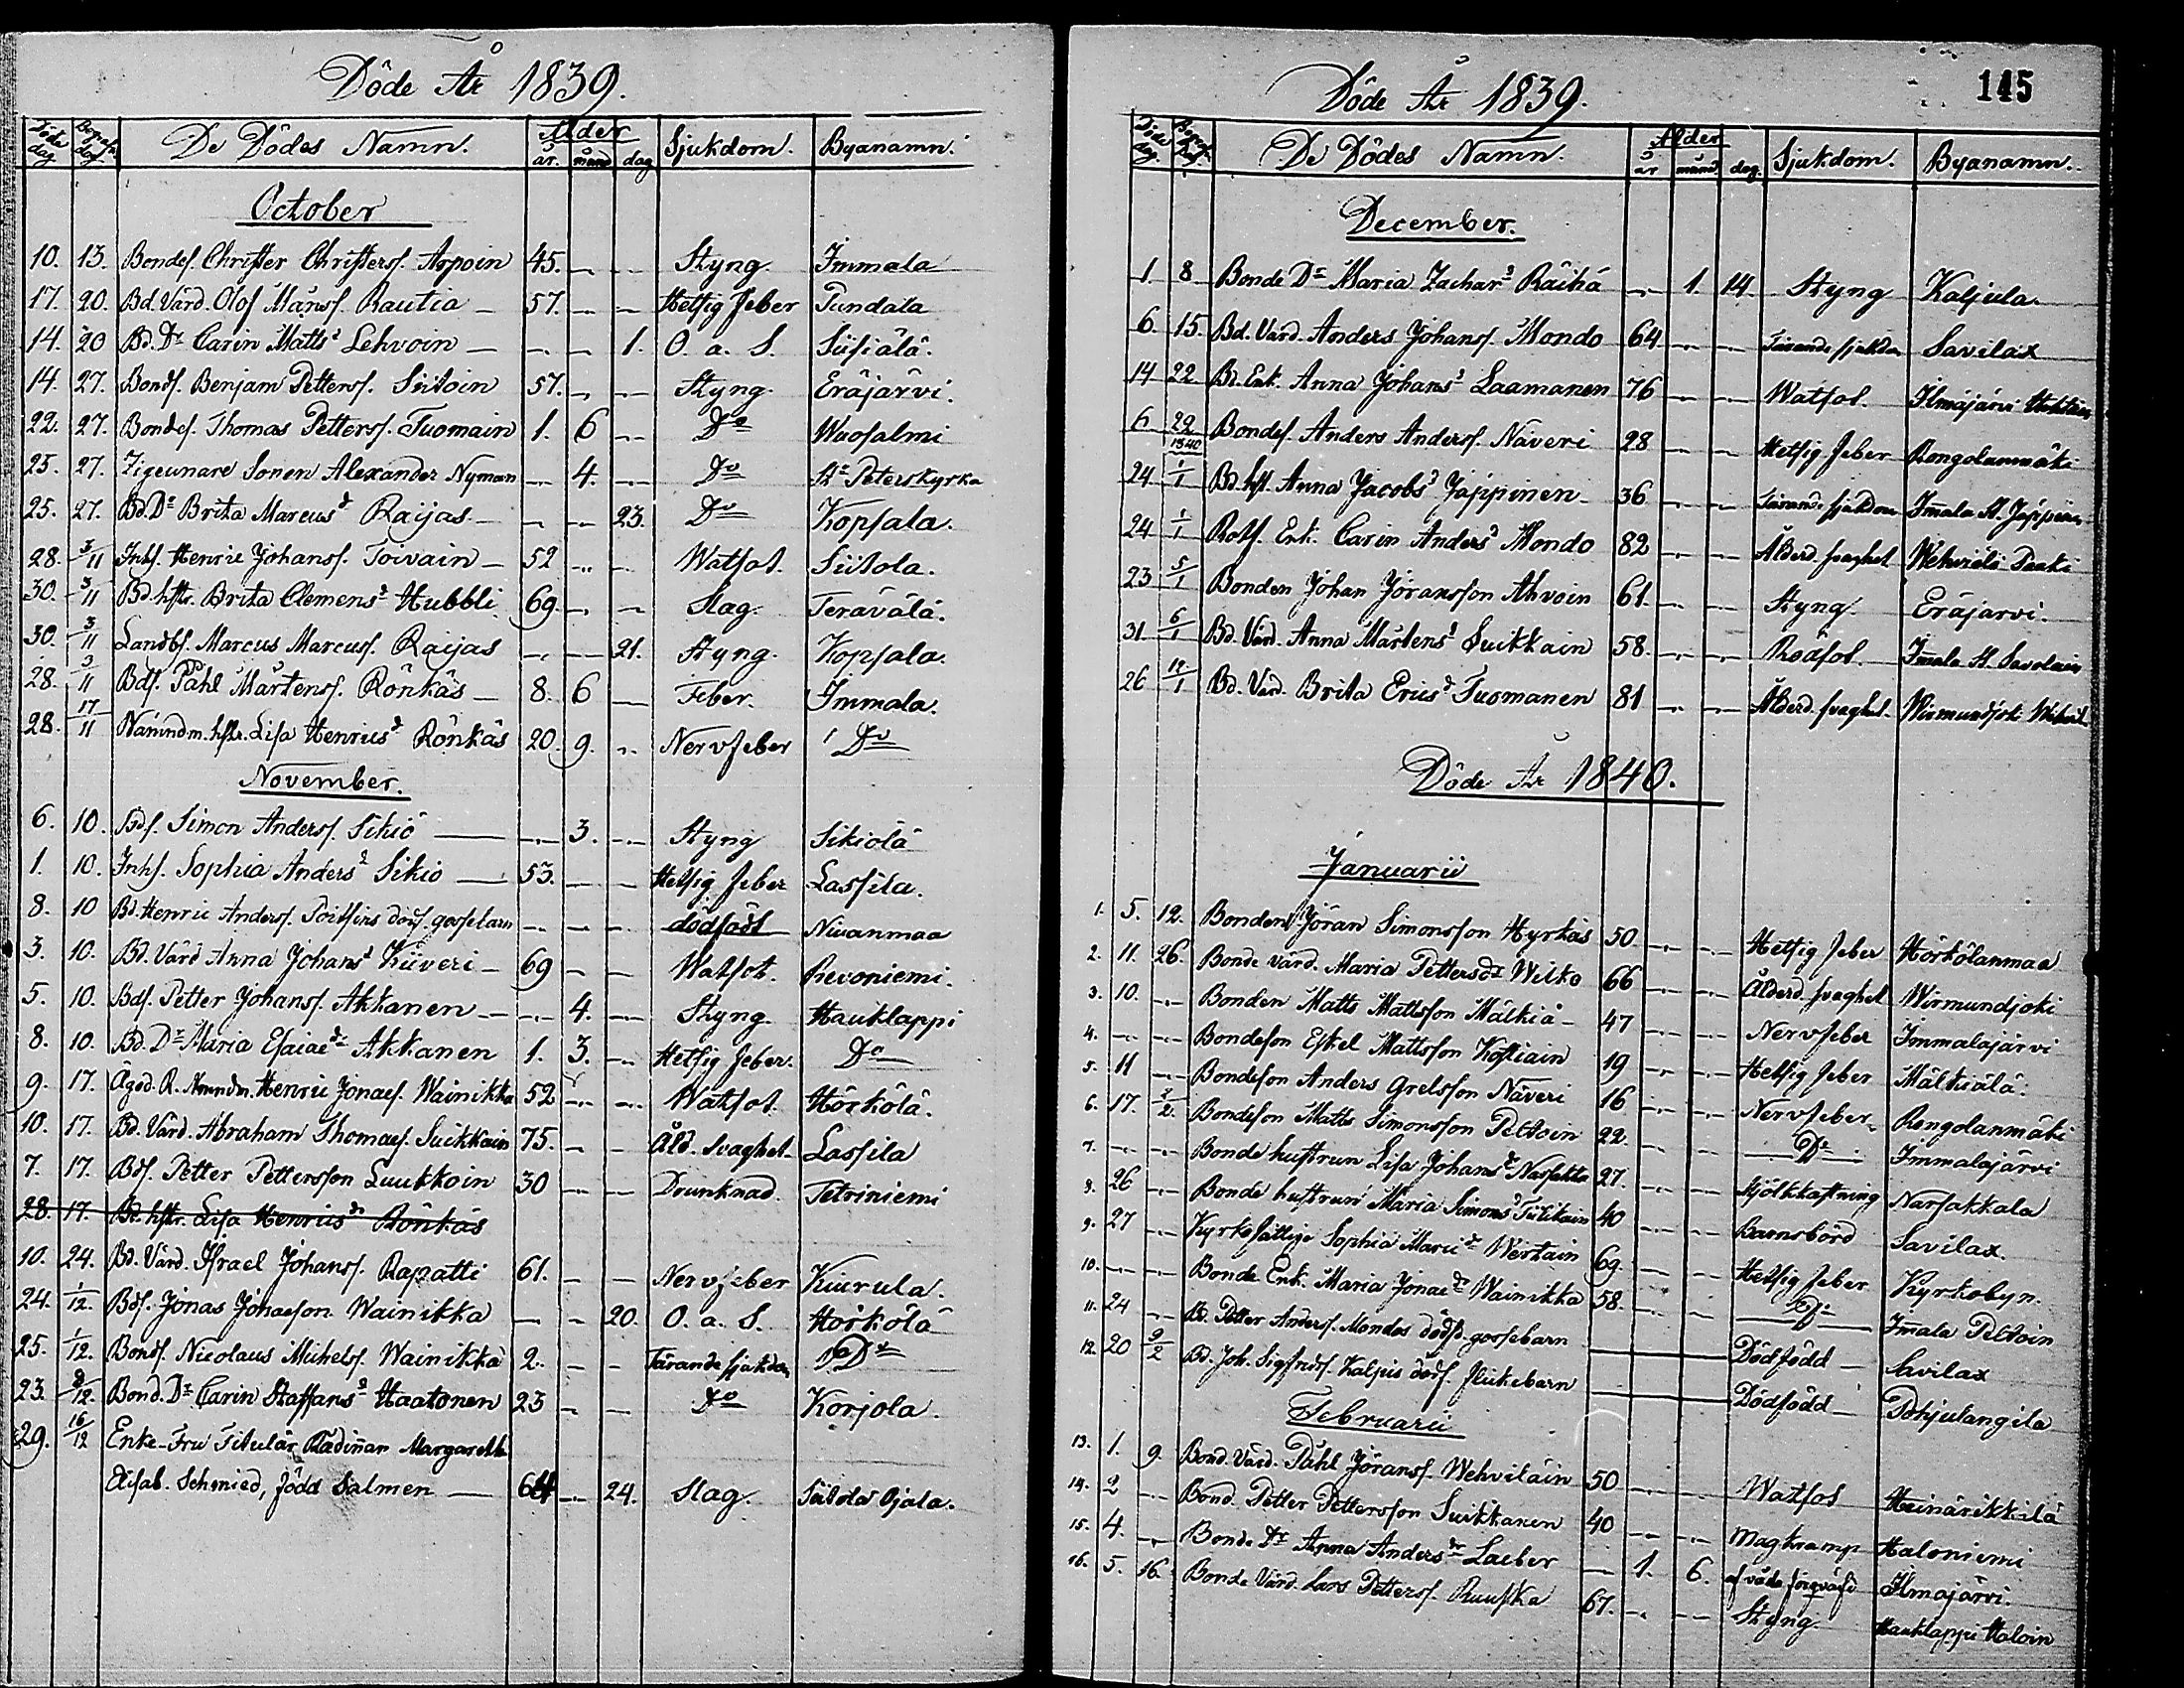 Döde År 1839.
Döde dag Begrafn. dag De Dödes Namn. Ålder år. månd dag Sjukdom. Byanamn.
October
10. 13. Bondes. Christer Christers. Arpoin 45. — — Styng. Immala
17. 20. Bd. Värd. Olof Månss. Rautia — 57. — — Hetsig feber Pundala
14. 20 Bd. Dr Carin Mattsd Lehvoin — — — 1. O. a. S. Siisiälä.
14. 27. Bonds. Benjam Petters. Siitoin 57. — — Styng. Eräjärvi.
22. 27. Bondes. Thomas Petterss. Tuomain 1. 6 — Do Wuosalmi
25. 27. Zigeunare Sonen Alexander Nyman — 4. — Do St Peterskyrka
25. 27. Bd. Dr Brita Marcusd Raijas — — — 23. Do Kopsala.
28. 3/11 Inhs. Henric Johanss. Toivain — 52 — — Watsot. Siitola.
30. 3/11 Bd. hstr. Brita Clemensd Hubbli 69. — — Slag. Terävälä.
30. 3/11 Landbs. Marcus Marcuss. Raijas — — 21. Styng. Kopsala.
28. 3/11 Bds. Påhl Mårtenss. Rönkäs — 8. 6 — Feber. Immala.
28. 17/11 Nämndm. hstr. Lisa Henricsd Rönkäs 20. 9. — Nervfeber Do
November.
6. 10. Bds. Simon Anderss. Sikiö — — 3. — Styng Sikiölä
1. 10. Inhs. Sophia Andersd Sikiö — 53. — — Hetsig feber Lassila.
8. 10 Bd. Henric Anderss. Poitsins döds. gossebarn — — — dödfödt Niuanmaa
3. 10. Bd. Värd Anna Johansd Kiiveri — 69 — — Watsot. Revoniemi.
5. 10. Bds. Petter Johanss. Akkanen — — 4. — Styng Hauklappi
8. 10. Bd. Dr Maria Esaiaedr Akkanen 1. 3. — Hetsig feber. Do
9. 17. Ägod. R. Nmndm. Henric Jonaes. Wainikka 52 — — Watsot. Hörkölä.
10. 17. Bd. Värd. Abraham Thomaes. Suikkain 75. — — Åld. Svaghet Lassila
7. 17. Bds. Petter Pettersson Luukkoin 30 — — Drunknad. Tetriniemi
28. 17. Bd. hstr. Lisa Henricsdr Rönkäs
10. 24. Bd. Värd. Israel Johanss. Rapatti 61. — — Nervfeber Kuurula.
24. 1/12. Bds. Jonas Jonaeson Wainikka — — 20. O. a. S. Hörkölä
25. 1/12. Bonds. Nicolaus Michelss. Wainikka 2. — — Tärande sjukdom Do
23. 8/12. Bond. Dr Carin Staffansd Haatonen 23 — — Do Korjola.
29. 16/12 Enke-Fru Titulär Rådinnan Margaretha
Elisab. Schmied, född Salmen — 64 — 24. Slag. Siitola Ojala.
145
Döde År 1839.
Döde dag Begrafn. dag De Dödes Namn. Ålder år månd dag. Sjukdom. Byanamn.
December.
1. 8 Bonde Dr Maria Zacharsd Räihä — 1. 14. Styng Kaljula.
6. 15. Bd. Värd. Anders Johanss. Mondo 64 — — Tärande sjukdom Savilax
14 22 Bd. Enk. Anna Johansd Laamanen 76 — — Watsot. Ilmäjärvi
6. 22 Bondes. Anders Anderss. Näveri 28 — — Hetsig feber Rongolanmäki
1840
24 1/1 Bd. hst. Anna Jacobsd Jäppinen — 36 — — Tärande sjukdom Immala H. Jäppinen
24 1/1 Rots. Enk. Carin Andersd Mondo 82 — — Ålderd. svaghet Wehviälä
23 5/1 Bonden Johan Jöransson Ahvoin 61. — — Styng. Eräjärvi.
31. 6/1 Bd. Värd. Anna Mårtensd Suikkain 58. — — Rödsot. Immala H. Savolain
26 12/1 Bd. Värd. Brita Ericsd Tuomanen 81 — — Ålderd. svaghet. Wirmundjoki
Döde År 1840.
Januarii
1. 5. 12. Bonden Jöran Simonsson Hyrkäs 50. — — Hetsig feber Hörkölanmaa
2. 11. 26. Bonde värd. Maria Pettersdr Wilko 66 — — Ålderd. svaghet Wirmundjoki
3. 10. — Bonden Matts Mattsson Mälkiä — 47 — — Nervfeber Immalajärvi
4. — — Bondeson Eskel Mattsson Kostiain 19 — — Hetsig feber Mälkiälä.
5. 11 — Bondeson Anders Grelsson Näveri 16 — — Nervfeber Rongolanmäki
6. 17. 2/2. Bondeson Matts Simonsson Peltoin 22. — — Do Immalajärvi
7. — — Bonde hustrun Lisa Johansdr Narsakka 27. — — Mjölkkastning Narsakkala
8. 26 — Bonde hustrun Maria Simonsd Tiilikain 40 — — Barnsbörd Savilax.
9. 27 — Kyrkofattige Sophia Maricdr Wertain 69. — — Hetsig feber Kyrkobyn.
10. — — Bonde Enk. Maria Jonaedr Wainikka 58. — — Do Immala Peltoin
11. 24 — Bd. Petter Anderss. Mondos dödfd. gossebarn — Dödfödd — Savilax
12. 20 9/2 Bd. Joh. Sigfridss. Kaljus döds. flickebarn — Dödfödd — Pohjulangila
Februarii
13. 1. 9. Bond. Värd. Påhl Jöranss. Wehviläin 50 — — Watsot Heinärikkilä
14. 2 — Bond. Petter Pettersson Suikkanen 40 — — Magkramp Haloniemi
15. 4. — Bonde Dr Anna Andersdr Laeber — 1. 6. af våda Ilmajärvi.
16. 5. 16. Bonde Värd. Lars Petterss. Ruuska 67. — — Styng. Hauklappi Haloin